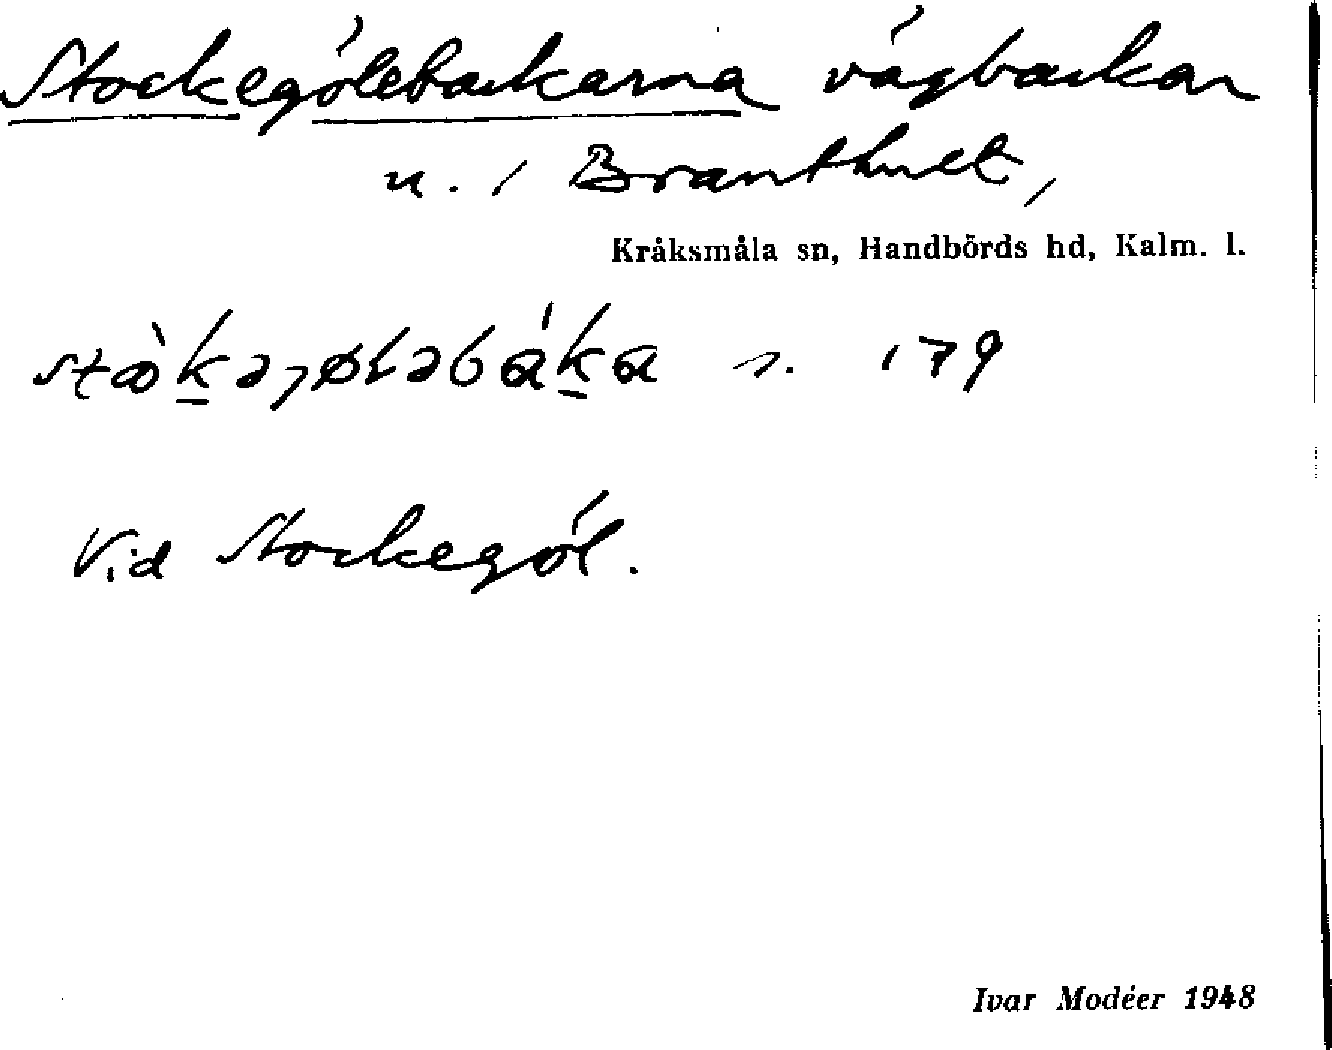 Stockegölebackarna vägbackar
n. i Branthult,
Kråksmåla sn, Handbörds hd, Kalm. l.
s. 179
Vid Stockegöl.
Ivar Modéer 1948